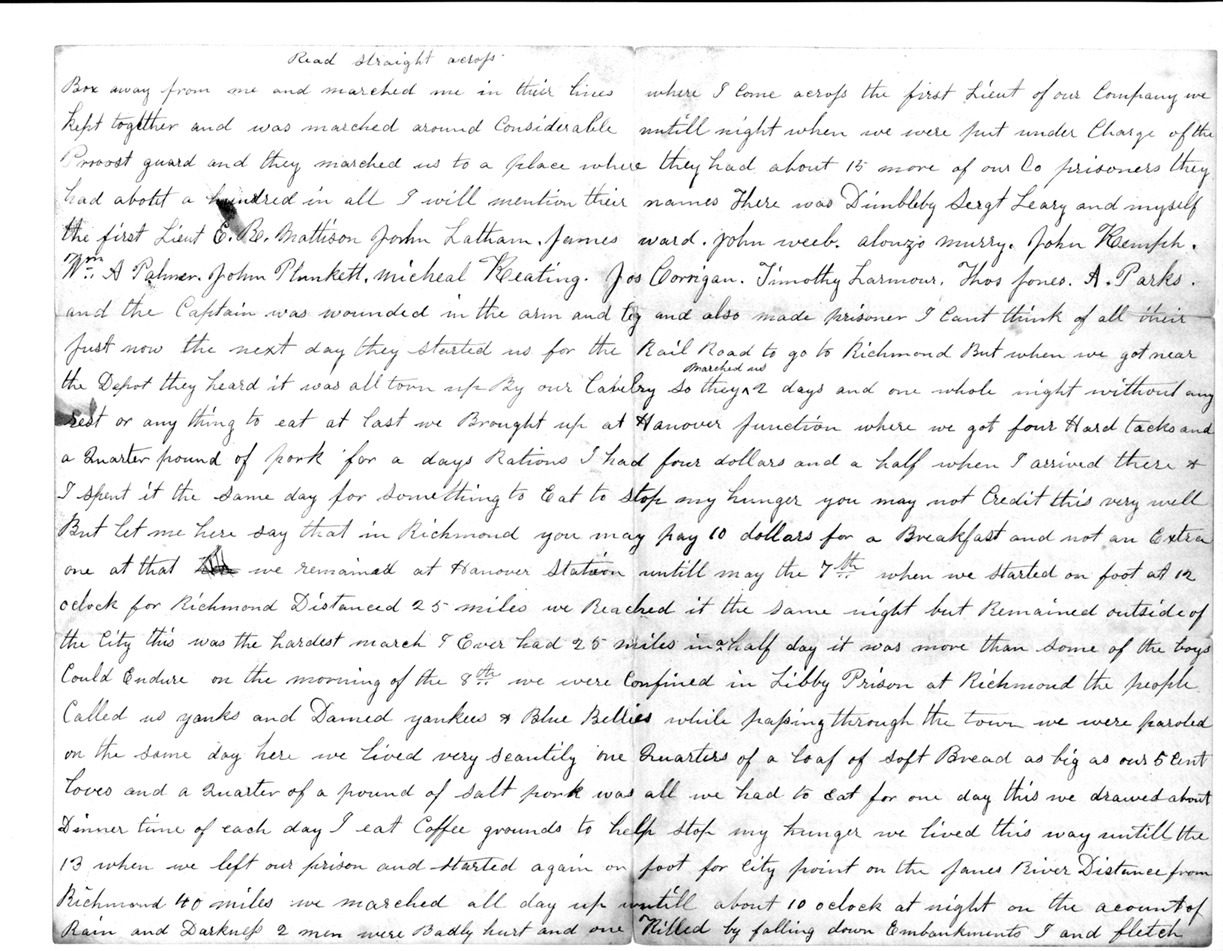 Read straight across
Box away from me and marched me in their lines where I Come across the first Lieut of our Company we
kept together and was marched around Considerable untill night when we were put under Charge of the
Provost guard and they marched us to a place where they had about 15 more of our Co prisoners they
had about a hundred in all I will mention their names There was Dimbleby Sergt Leary and myself
the first Lieut E. R. Mattison John Latham. James ward. john weeb. alonzo murry. John Kemph.
Wm. A Palmer. John Plunkett. micheal Keating. Jos Corrigan. Timothy Larmour. Thos jones. A. Parks.
and the Captain was wounded in the arm and leg and also made prisoner I Cant think of all their
just now the next day they started us for the Rail Road to go to Richmond But when we got near
the Depot they heard it was all torn up By our Cavelry so they marched us 2 days and one whole night without any
rest or any thing to eat at last we Brought up at Hanover function where we got four Hard tacks and
a Quarter pound of pork for a days Rations I had four dollars and a half when I arrived there &
I spent it the same day for something to Eat to stop my hunger you may not Credit this very well
But let me here say that in Richmond you may pay 10 dollars for a Breakfast and not an Extra
one at that we remained at Hanover Station untill may the 7th when we started on foot at 12
oclock for Richmond Distanced 25 miles we Reached it the same night but Remained outside of
the City this was the hardest march I Ever had 25 miles in a half day it was more than some of the boys
Could Endure on the morning of the 8th we were Confined in Libby Prison at Richmond the people
Called us yanks and Damed yankees & Blue Bellies while passing through the town we were paroled
on the same day here we lived very scantily one Quarters of a loaf of soft Bread as big as our 5 Cent
loves and a Quarter of a pound of salt pork was all we had to eat for one day this we drawed about
Dinner time of each day I eat Coffee grounds to help stop my hunger we lived this way untill the
13 when we left our prison and started again on foot for City point on the james River Distance from
Richmond 40 miles we marched all day up untill about 10 oclock at night on the acount of
Rain and Darkness 2 men were Badly hurt and one Killed by falling down Embankments I and fletch